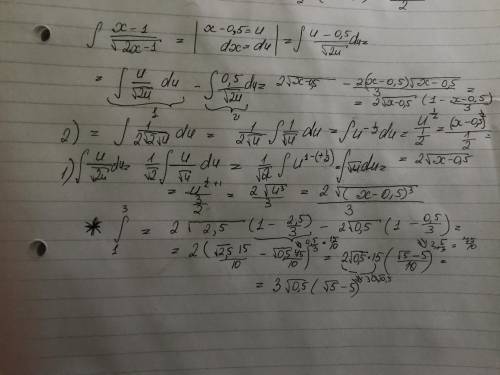 ∫ (x-1)/√(2x-1) = | x-0,5=u  dx=du | = ∫ (u-0,5)/√(2u) du =
= ∫ u/√(2u) du - ∫ 0,5/√(2u) du = 2√(x-0,5) - 2(x-0,5)√(x-0,5)/3 =
1 2 = 2√(x-0,5) (1 - (x-0,5)/3)
2) = ∫ 1/(2√2√u) du = 1/(2√u) ∫ 1/√u du = ∫ u^(-½) du = u^(½)/(1/2) = (x-0,5)^(½)/(1/2) =
= 2√(x-0,5)
1) ∫ u/√(2u) du = 1/√2 ∫ u/√u du = ∫ √u du =
= u^(½+1)/(3/2) = 2√(u³)/3 = 2√((x-0,5)³)/3
* ∫₁³ = 2√(2,5) (1 - 2,5/3) - 2√(0,5) (1 - 0,5/3) =
= 2√(0,5)·15 ((√5-5)/10) =
= 3√(0,5) (√5-5)